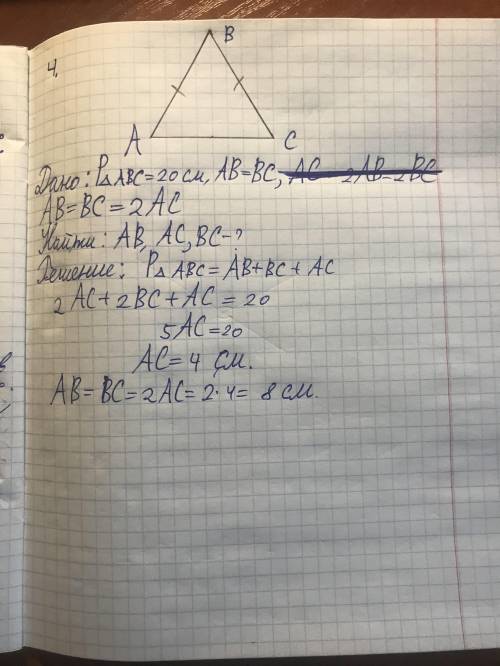 4.
B
A
C
Дано: P△ABC=20 см, AB=BC, AC 2AB=2BC
AB=BC=2AC
Найти: AB, AC, BC-?
Решение: P△ABC=AB+BC+AC
2AC+2BC+AC=20
5AC=20
AC=4 см.
AB=BC=2AC=2·4= 8 см.